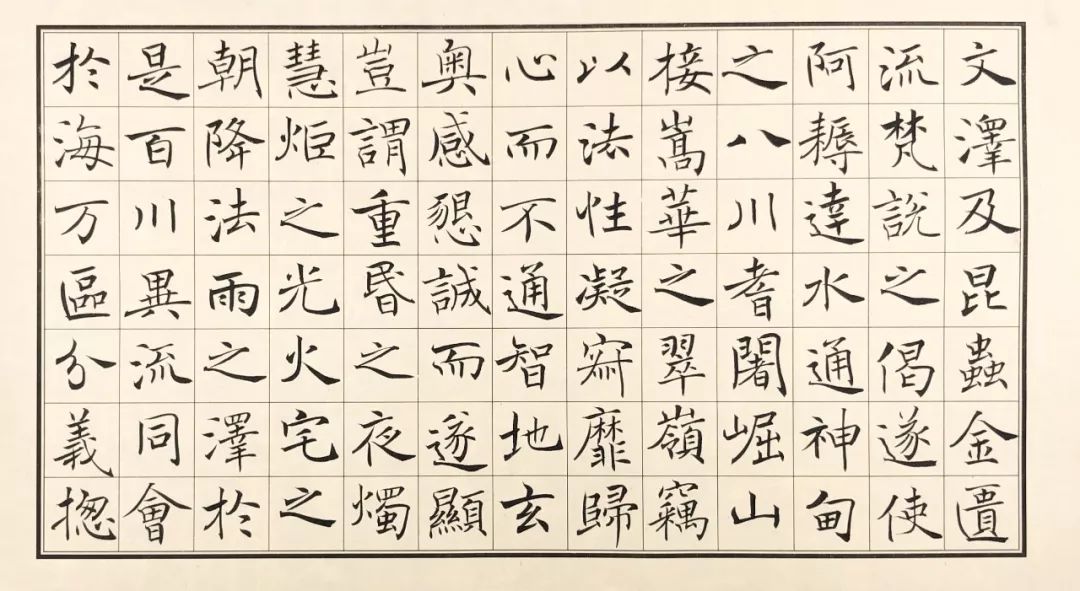 文澤及昆蟲金匱
流梵說之偈遂使
阿耨達水通神甸
之八川耆闍崛山
接嵩華之翠嶺竊
以法性凝寂靡歸
心而不通智地玄
奥感懇誠而遂顯
豈謂重昬之夜燭
慧炬之光火宅之
朝降法雨之澤於
是百川異流同會
於海万區分義揔